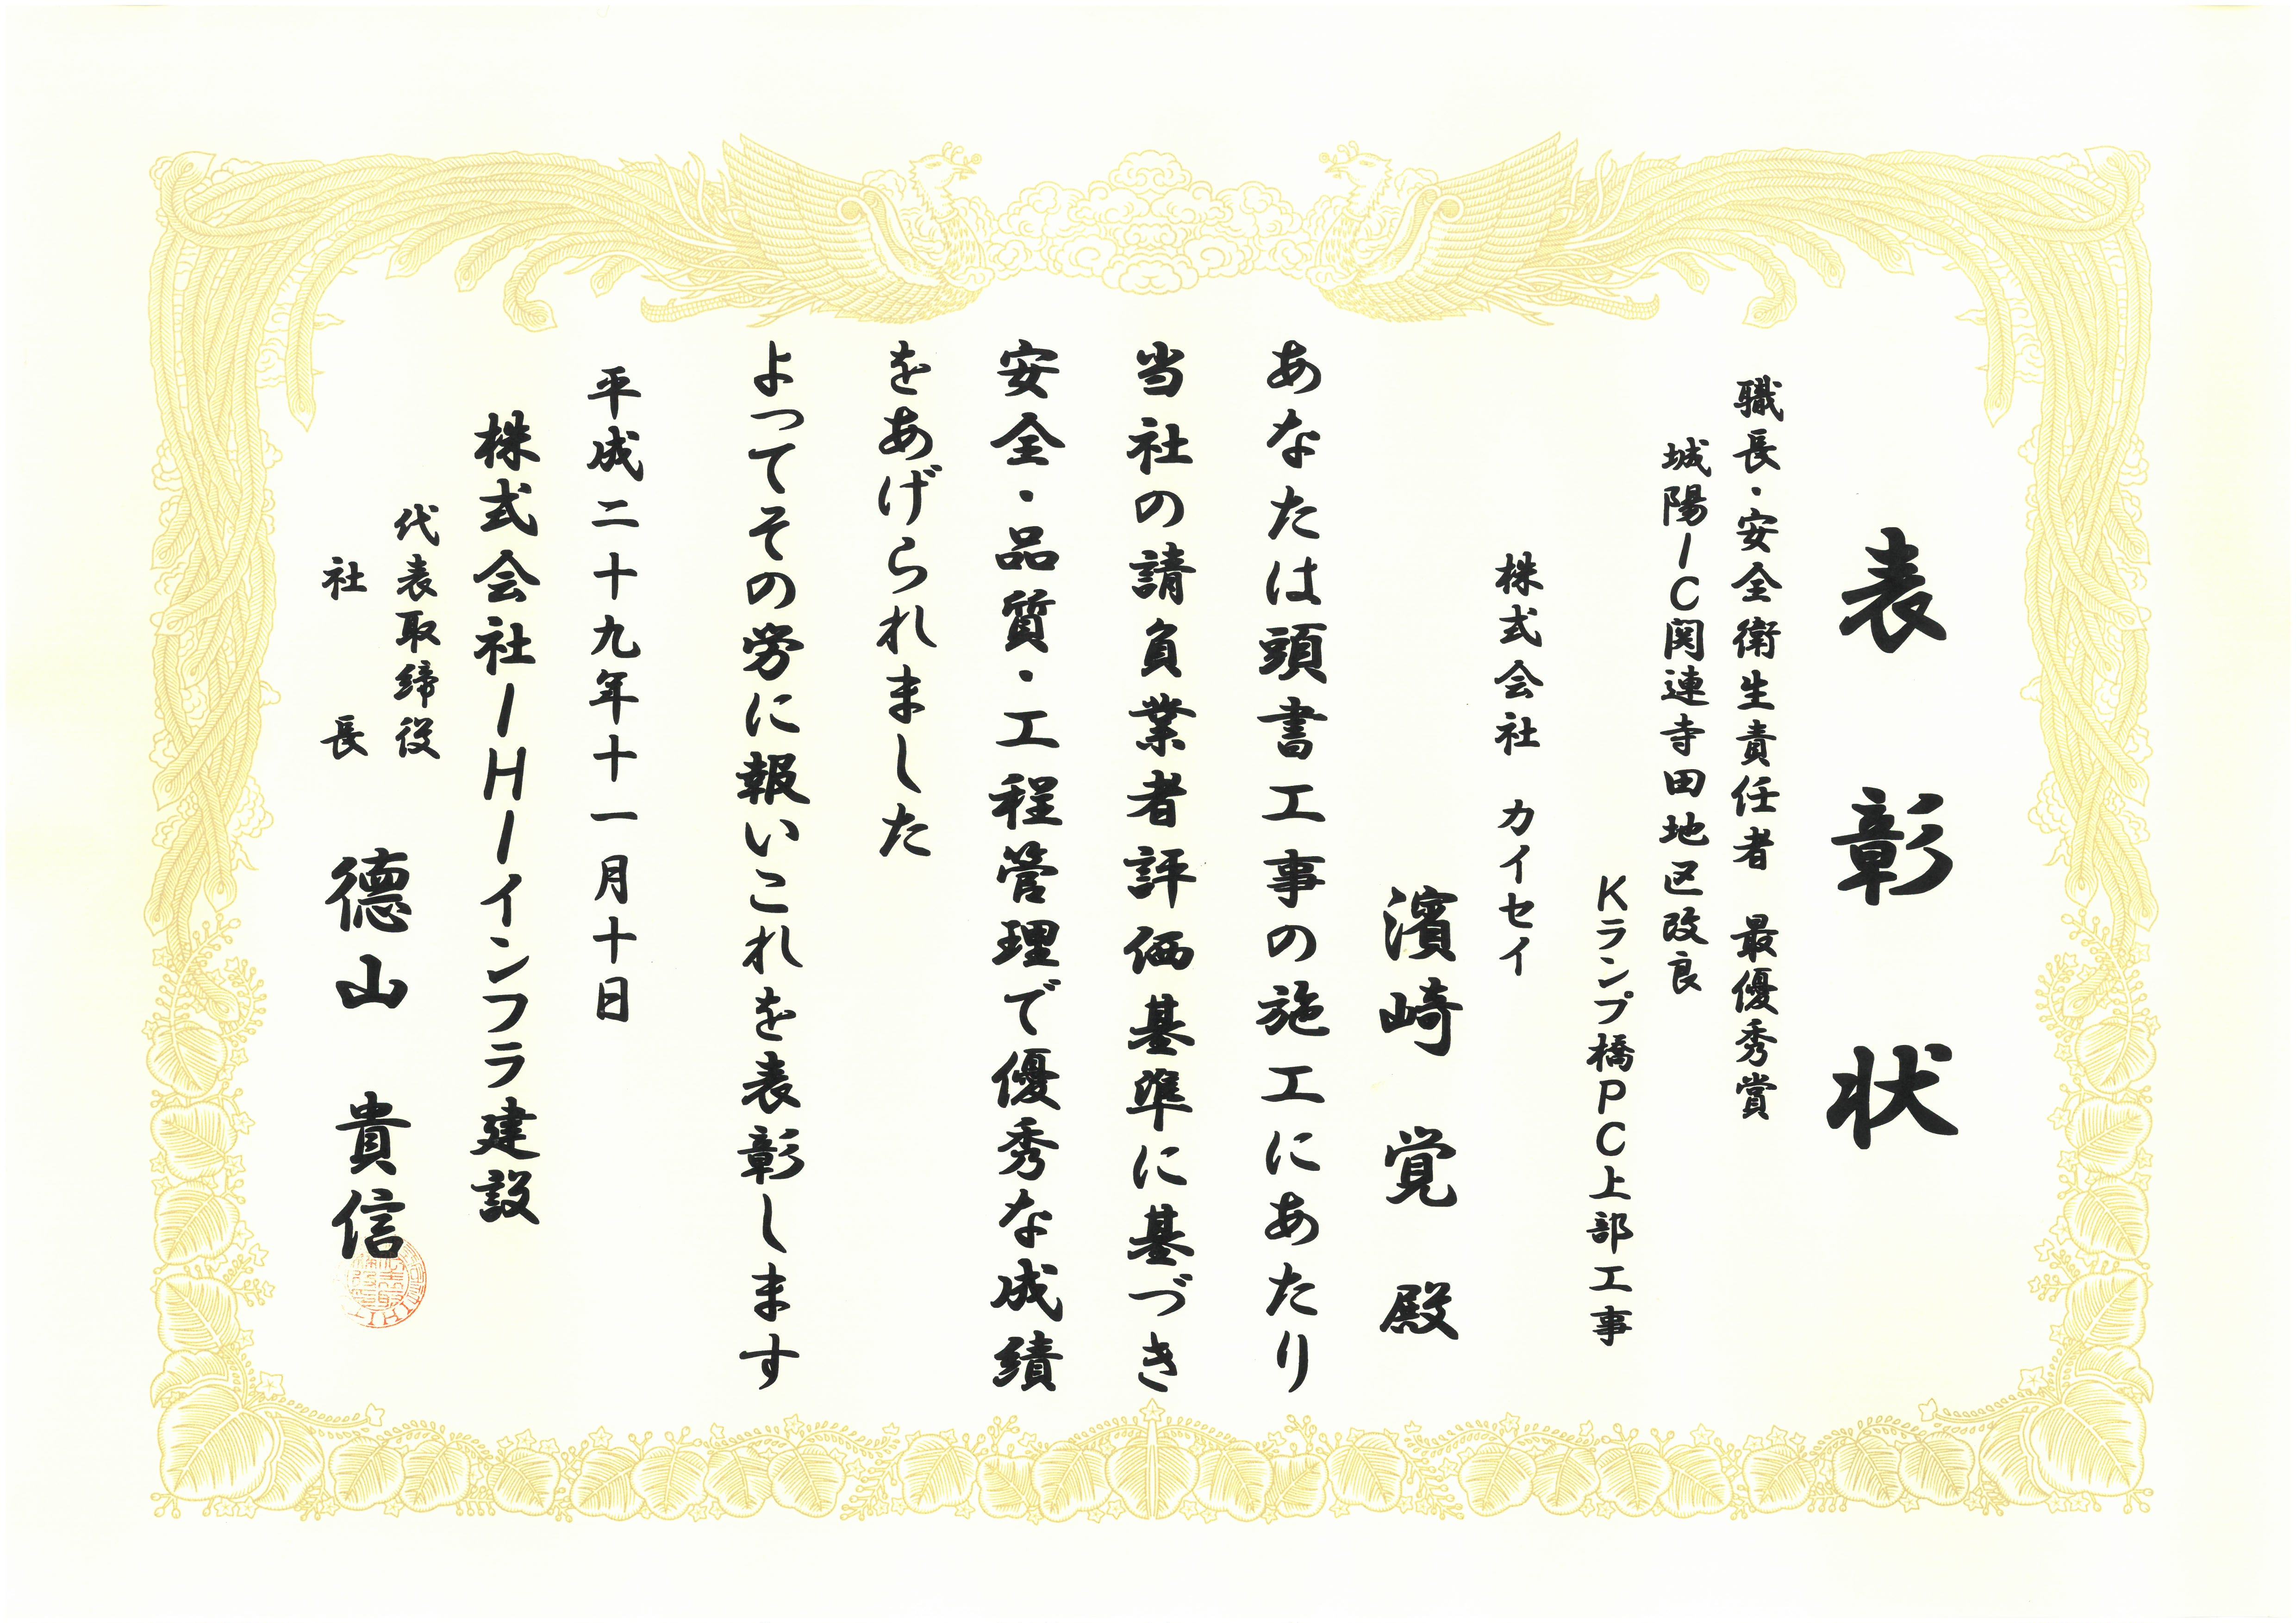 表彰状
職長・安全衛生責任者　最優秀賞
城陽ＩＣ関連寺田地区改良
Ｋランプ橋ＰＣ上部工事
株式会社　カイセイ
濱崎　覚　殿
あなたは頭書工事の施工にあたり
当社の請負業者評価基準に基づき
安全・品質・工程管理で優秀な成績
をあげられました
よってその労に報いこれを表彰します
平成二十九年十一月十日
株式会社ＩＨＩインフラ建設
代表取締役
社長　德山　貴信